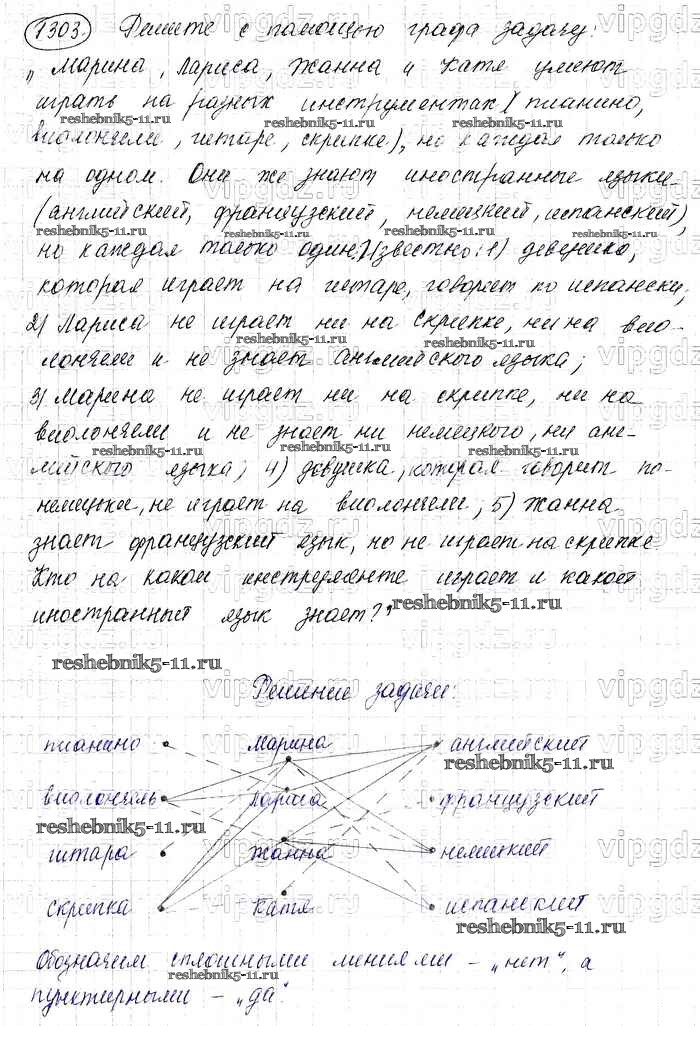 1303. Решите с помощью графа задачу:
„Марина, Лариса, Жанна и Катя умеют
играть на разных инструментах (пианино,
виолончели, гитаре, скрипке), но каждая только
на одном. Они же знают иностранные языки
(английский, французский, немецкий, испанский),
но каждая только один. Известно: 1) девушка,
которая играет на гитаре, говорит по испански;
2) Лариса не играет ни на скрипке, ни на вио-
лончели и не знает английского языка;
3) Марина не играет ни на скрипке, ни на
виолончели и не знает ни немецкого, ни анг-
лийского языка; 4) девушка, которая говорит по-
немецки, не играет на виолончели; 5) Жанна
знает французский язык, но не играет на скрипке.
Кто на каком инструменте играет и какой
иностранный язык знает?"
reshebnik5-11.ru
Решение задачи:
пианино Марина английский
виолончель Лариса французский
гитара Жанна немецкий
скрипка Катя испанский
Обозначим сплошными линиями – „нет", а
пунктирными – „да".